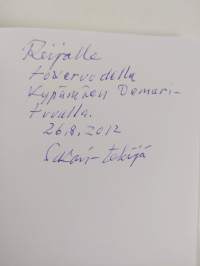 Reijalle
toivervodella
Kypärnäen Demari-
tuvalla.
26.8.2012
-tekijä